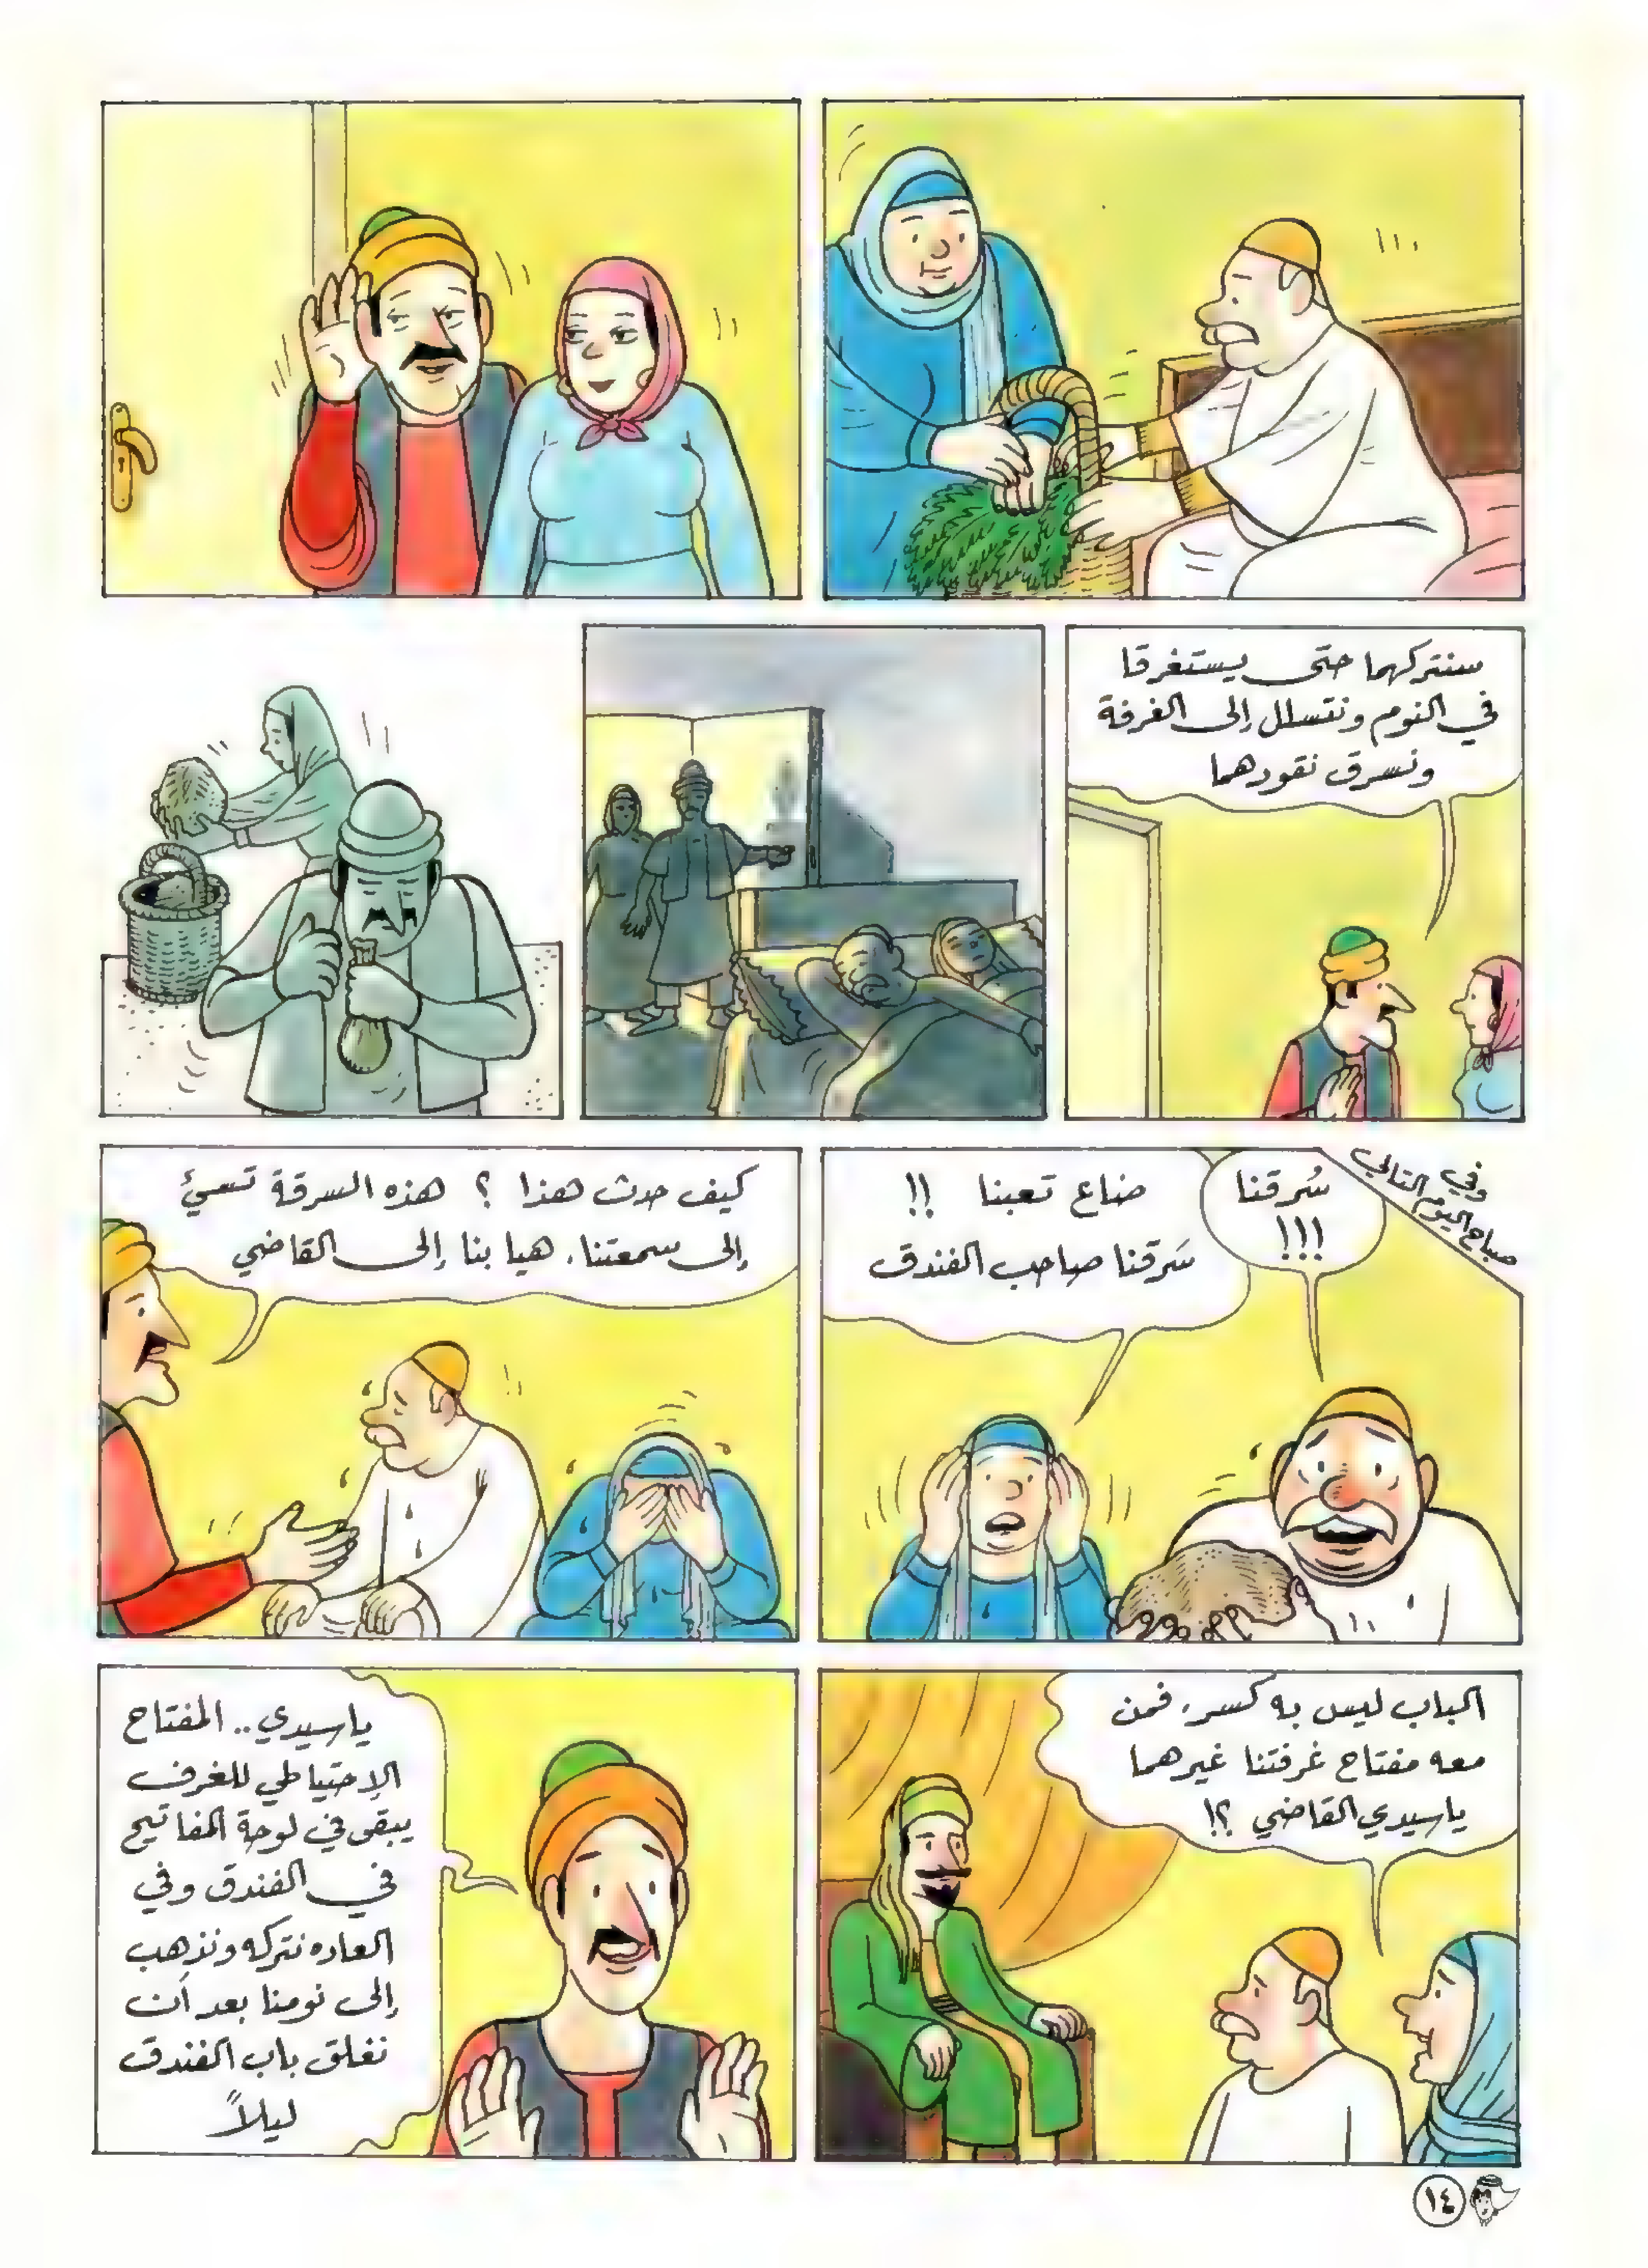 سنتركهما حتى يستغرقا
في النوم ونتسلل إلى الغرفة
ونسرق نقودهما
وفي
صباح اليوم التالي
سُرقنا
!!!
ضاع تعبنا !!
سَرقنا صاحب الفندق
كيف حدث هذا ؟ هذه السرقة تسئ
إلى سمعتنا. هيا بنا إلى القاضي
الباب ليس به كسر. فمن
معه مفتاح غرفتنا غيرهما
ياسيدي القاضي ؟!
ياسيدي.. المفتاح
الإحتياطي للغرف
يبقى في لوحة المفاتيح
في الفندق وفي
العاده نتركه ونذهب
إلى نومنا بعد أن
نغلق باب الفندق
ليلاً
١٤